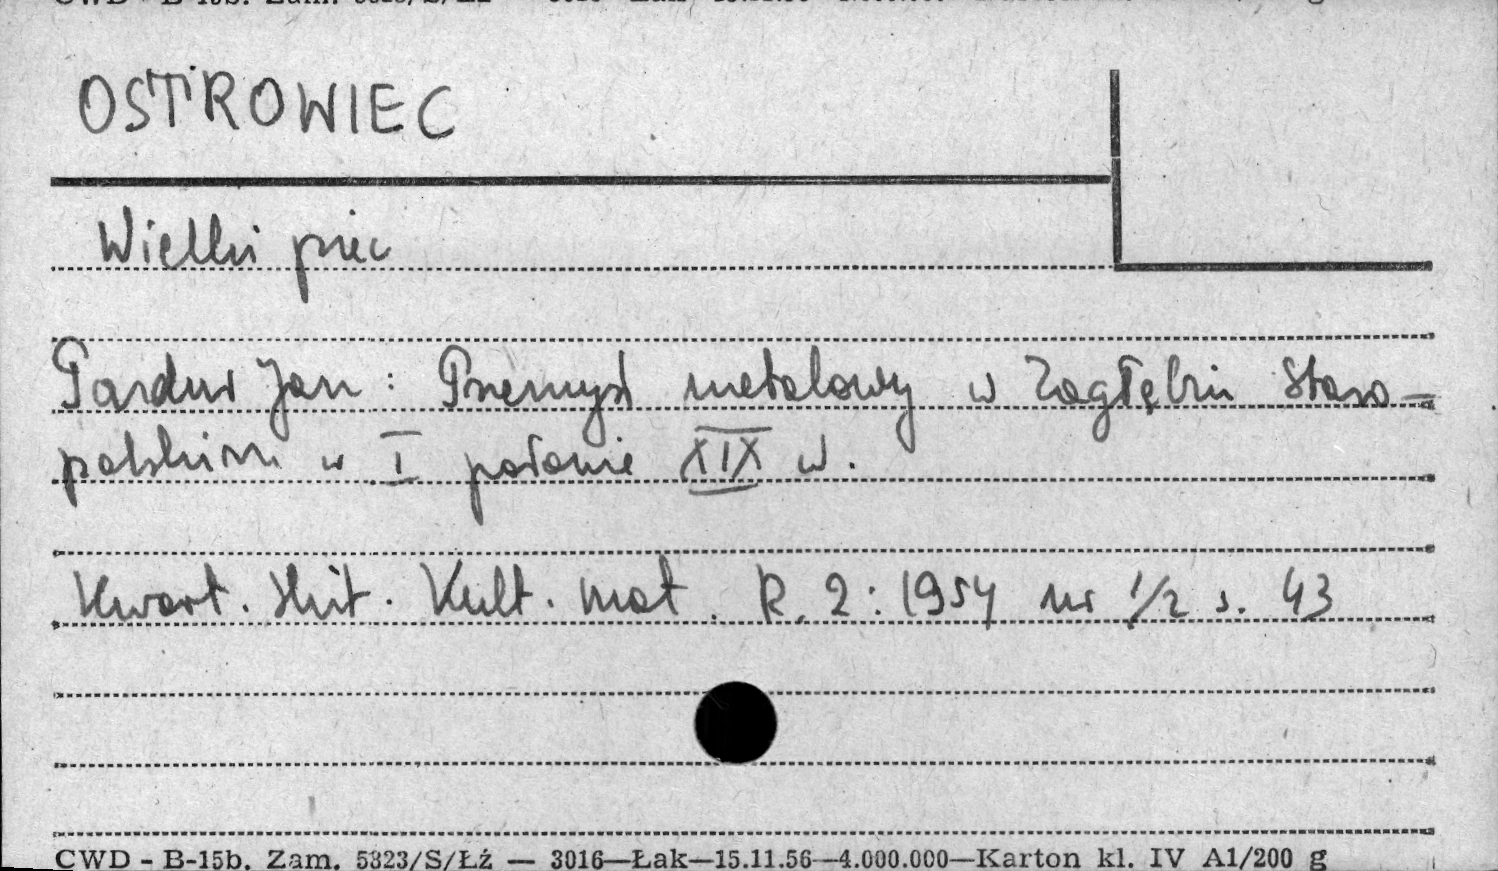 OSTROWIEC
Wielki piec
Pazdur Jan: Przemysł metalowy w Zagłębiu Staro-
polskim w I połowie XIX w.
Kwart. Hist. Kult. Mat. R. 2: 1954 nr 1/2 s. 43
CWD - B-15b. Zam. 5323/S/Łź — 3016—Łak—15.11.56—4.000.000—Karton kl. IV A1/200 g